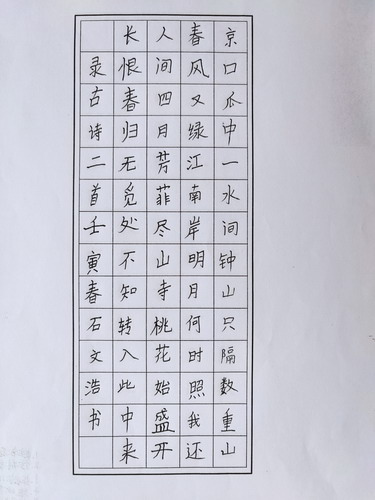 京口瓜中一水间钟山只隔数重山
春风又绿江南岸明月何时照我还
人间四月芳菲尽山寺桃花始盛开
长恨春归无觅处不知转入此中来
录古诗二首壬寅春石文浩书